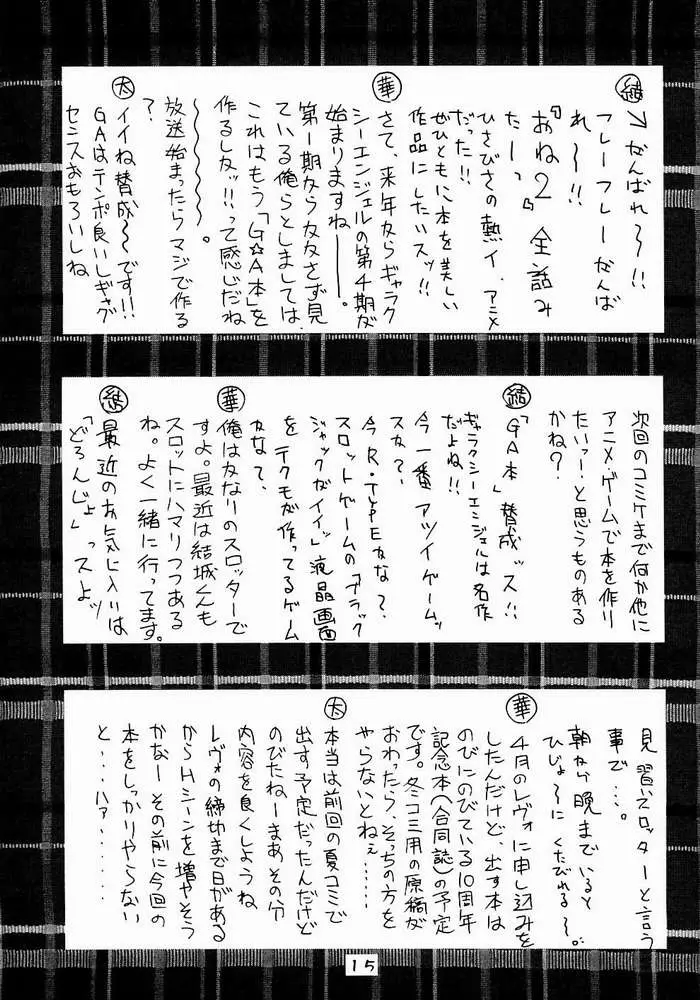 結
→がんばれ〜!!
フレーフレーがんば
れ〜!!
『おね2』全話み
たーっ
ひさびさの熱イ、アニメ
だった!!
ぜひともに本を美しい
作品にしたいスッ!!
華
さて、来年からギャラク
シーエンジェルの第4期が
始まりますねー。
第1期から欠かさず見
ている俺らとしましては、
これはもう「G☆A本」を
作るしか!!って感じだね
〜〜〜〜。
放送始まったらマジで作る
?
太
イイね賛成〜です!!
GAはテンポ良いしギャグ
センスおもろいしね
次回のコミケまで何か他に
アニメ・ゲームで本を作り
たいっー!と思うものある
かね?
結
「GA本」賛成ッス!!
ギャラクシーエンジェルは名作
だよね!!
今一番アツイゲームッ
スか?、
今R・TYPEかな?、
スロットゲームの「ブラック
ジャックがイイッ」液晶画面
をテクモが作ってるゲーム
かな?、
華
俺はかなりのスロッターで
すよ。最近は結城くんも
スロットにハマりつつある
ね。よく一緒に行ってます。
結
最近のお気に入りは
「どろんじょ」っスよッ
見習いスロッターと言う
事で…。
朝から晩までいると
ひじょ〜にくたびれる〜。
華
4月のレヴォに申し込みを
したんだけど、出す本は
のびにのびている10周年
記念本(合同誌)の予定
です。冬コミ用の原稿が
おわったら、そっちの方を
やらないとねぇ……
太
本当は前回の夏コミで
出す予定だったんだけど
のびたねーまあその分
内容を良くしようね
レヴォの締切まで日がある
からHシーンを増やそう
かなーその前に今回の
本をしっかりやらない
と…ハァ……
15